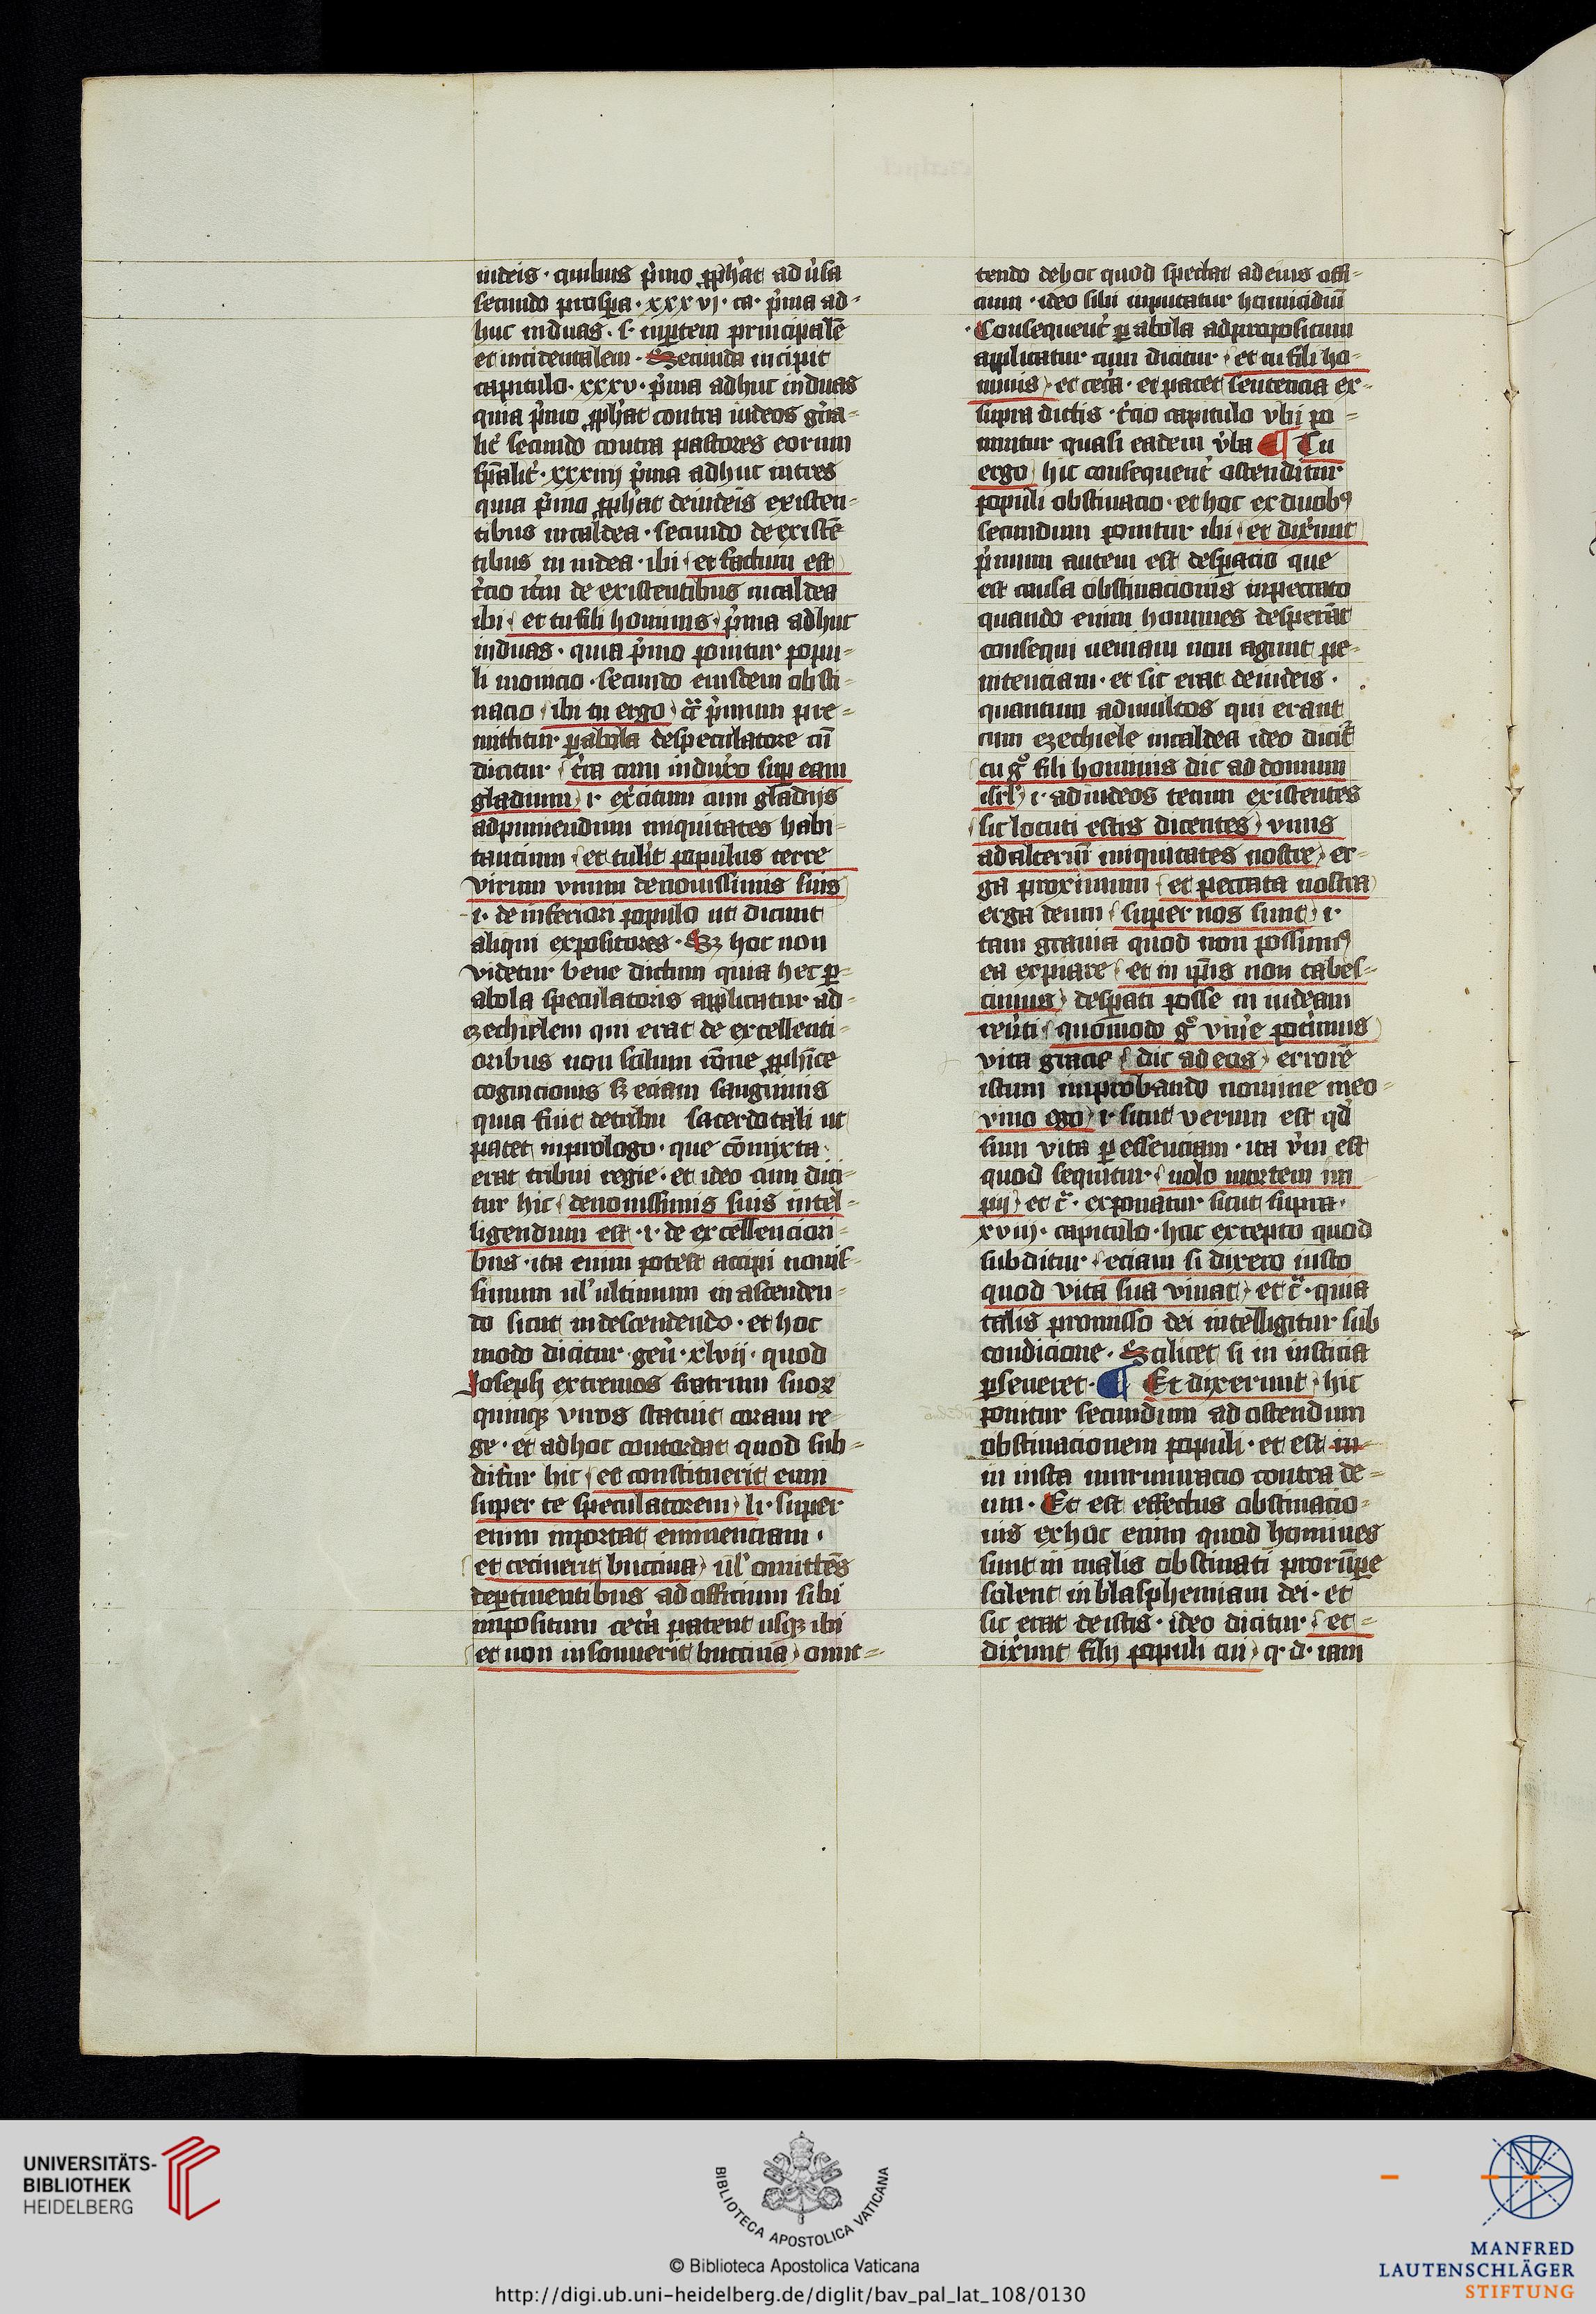 iudeis · quibus p̾mo ꝓph̾at adu̾sa
secundo prosꝑa · xxxvj · ca · p̾ma ad-
huc induas · s · inꝑtem principalē
et incidentalem · Secunda incipit
capitulo · xxxv · p̾ma adhuc induas
quia p̾mo ꝓph̾at contra iudeos gn̄a-
lit̾ secundo contra pastores eorum
sp̄alit̾ · xxxiiij p̾ma adhuc intres
quia p̾mo ꝓph̾at deiudeis existen-
tibus incaldea · secundo deexistē
tibus in iudea · ibi et factum est
t̾cio it̾m de existentibus incaldea
ibi et tu fili hominis · p̾ma adhuc
induas · quia p̾mo ponitur popu-
li monicio · secundo eiusdem obsti-
nacio ibi tu ergo c̾ p̾mum pre-
mittitur ꝑabola despeculatore cū
dicitur t̾ra cum induxo̾ suꝑ eam
gladium · i · ex̾citum cum gladijs
adpuniendum iniquitates habi-
tancium et tulit populus terre
virum vnum denouissimis suis
· i · de inferiori populo ut dicunt
aliqui expositores · Sꝫ hoc non
videtur bene dictum quia hec ꝑ-
abola speculatoris applicatur ad-
ezechielem qui erat de excellenti-
oribus non solum rōne ꝓph̄ice
cognicionis sꝫ eciam sanguinis
quia fuit detribu sacerdotali ut
patet inprologo · que cōmixta
erat tribui regie · et ideo cum dici-
tur hic denouissimis suis intel-
ligendum est · i · de excellenciori-
bus · ita enim potest accipi nouis-
simum ul̾ ultimum in ascenden-
do sicut indescendendo · et hoc
modo dicitur gen̾ · xlvij · quod
Joseph extremos fratrum suoꝝ
quinqꝫ viros statuit coram re-
ge · et adhoc concordat quod sub-
ditur hic et constituerit eum
super se speculatorem · li · super
enim inportat eminenciam ·
et cecinerit buccina ul̾ omittēs
deꝑtinentibus ad officium sibi
impositum cet̾a patent usqꝫ ibi
et non insonuerit buccina · omit-
tendo dehoc quod spectat ad eius offi-
cium · ideo sibi inputatur homicidiū
Consequent̾ ꝑabola adpropositum
applicatur cum dicitur · et tu fili ho-
minis · et cet̾a · et patet sentencia ex-
supra dictis · t̾cio capitulo vbi po-
nuntur quasi eadem v̾ba ¶ Tu
ergo hic consequent̾ ostenditur
populi obstinacio · et hoc ex duobꝰ
secundum ponitur ibi · et dix̾unt
p̾mum autem est desꝑacio que
est causa obstinacionis inpeccato
quando enim homines desperāt
consequi ueniam non agunt pe-
nitenciam · et sic erat deiudeis ·
quantum admultos qui erant
cum ezechiele incaldea ideo dicit̾
tu gͦ fili hominis dic ad domum
isrl̾ · i · adiudeos tecum existentes
sic locuti estis dicentes vnus
adalterū iniquitates nostre er-
ga proximum et peccata nostra
erga deum super nos sunt · i ·
tam grauia quod non possumꝰ
ea expiare et in ip̄is non tabes-
cimus desꝑati posse in iudeam
reu̾ti quomodo gͦ viue̾ pot̾imus
vita gracie dic ad eos errorē
istum improbando nomine meo
viuo ego · i · sicut verum est qd̾
sum vita ꝑ essenciam · ita v̾m est
quod sequitur · nolo mortem im
pij · et c̾ · exponatur sicut supra ·
xviij · capitulo · hoc excepto quod
subditur · eciam si dixero iusto
quod vita sua viuat · et c̾ · quia
talis promisso dei intelligitur sub
condicione · Scilicet si in iusticia
ꝑseueret · ¶ Et dixerunt hic
ponitur secundum ad ostendum
obstinacionem populi · et est in
in iusta murmuracio contra de-
um · Et est effectus obstinacio-
nis exhoc enim quod homines
sunt in malis obstinati prorūpe
solent inblasphemiam dei · et
sic erat deistis · ideo dicitur · et
dix̾unt filij populi tui · q · d · iam
UNIVERSITÄTS-
BIBLIOTHEK
HEIDELBERG
BIBLIOTECA APOSTOLICA VATICANA
© Biblioteca Apostolica Vaticana
http://digi.ub.uni-heidelberg.de/diglit/bav_pal_lat_108/0130
MANFRED
LAUTENSCHLÄGER
STIFTUNG